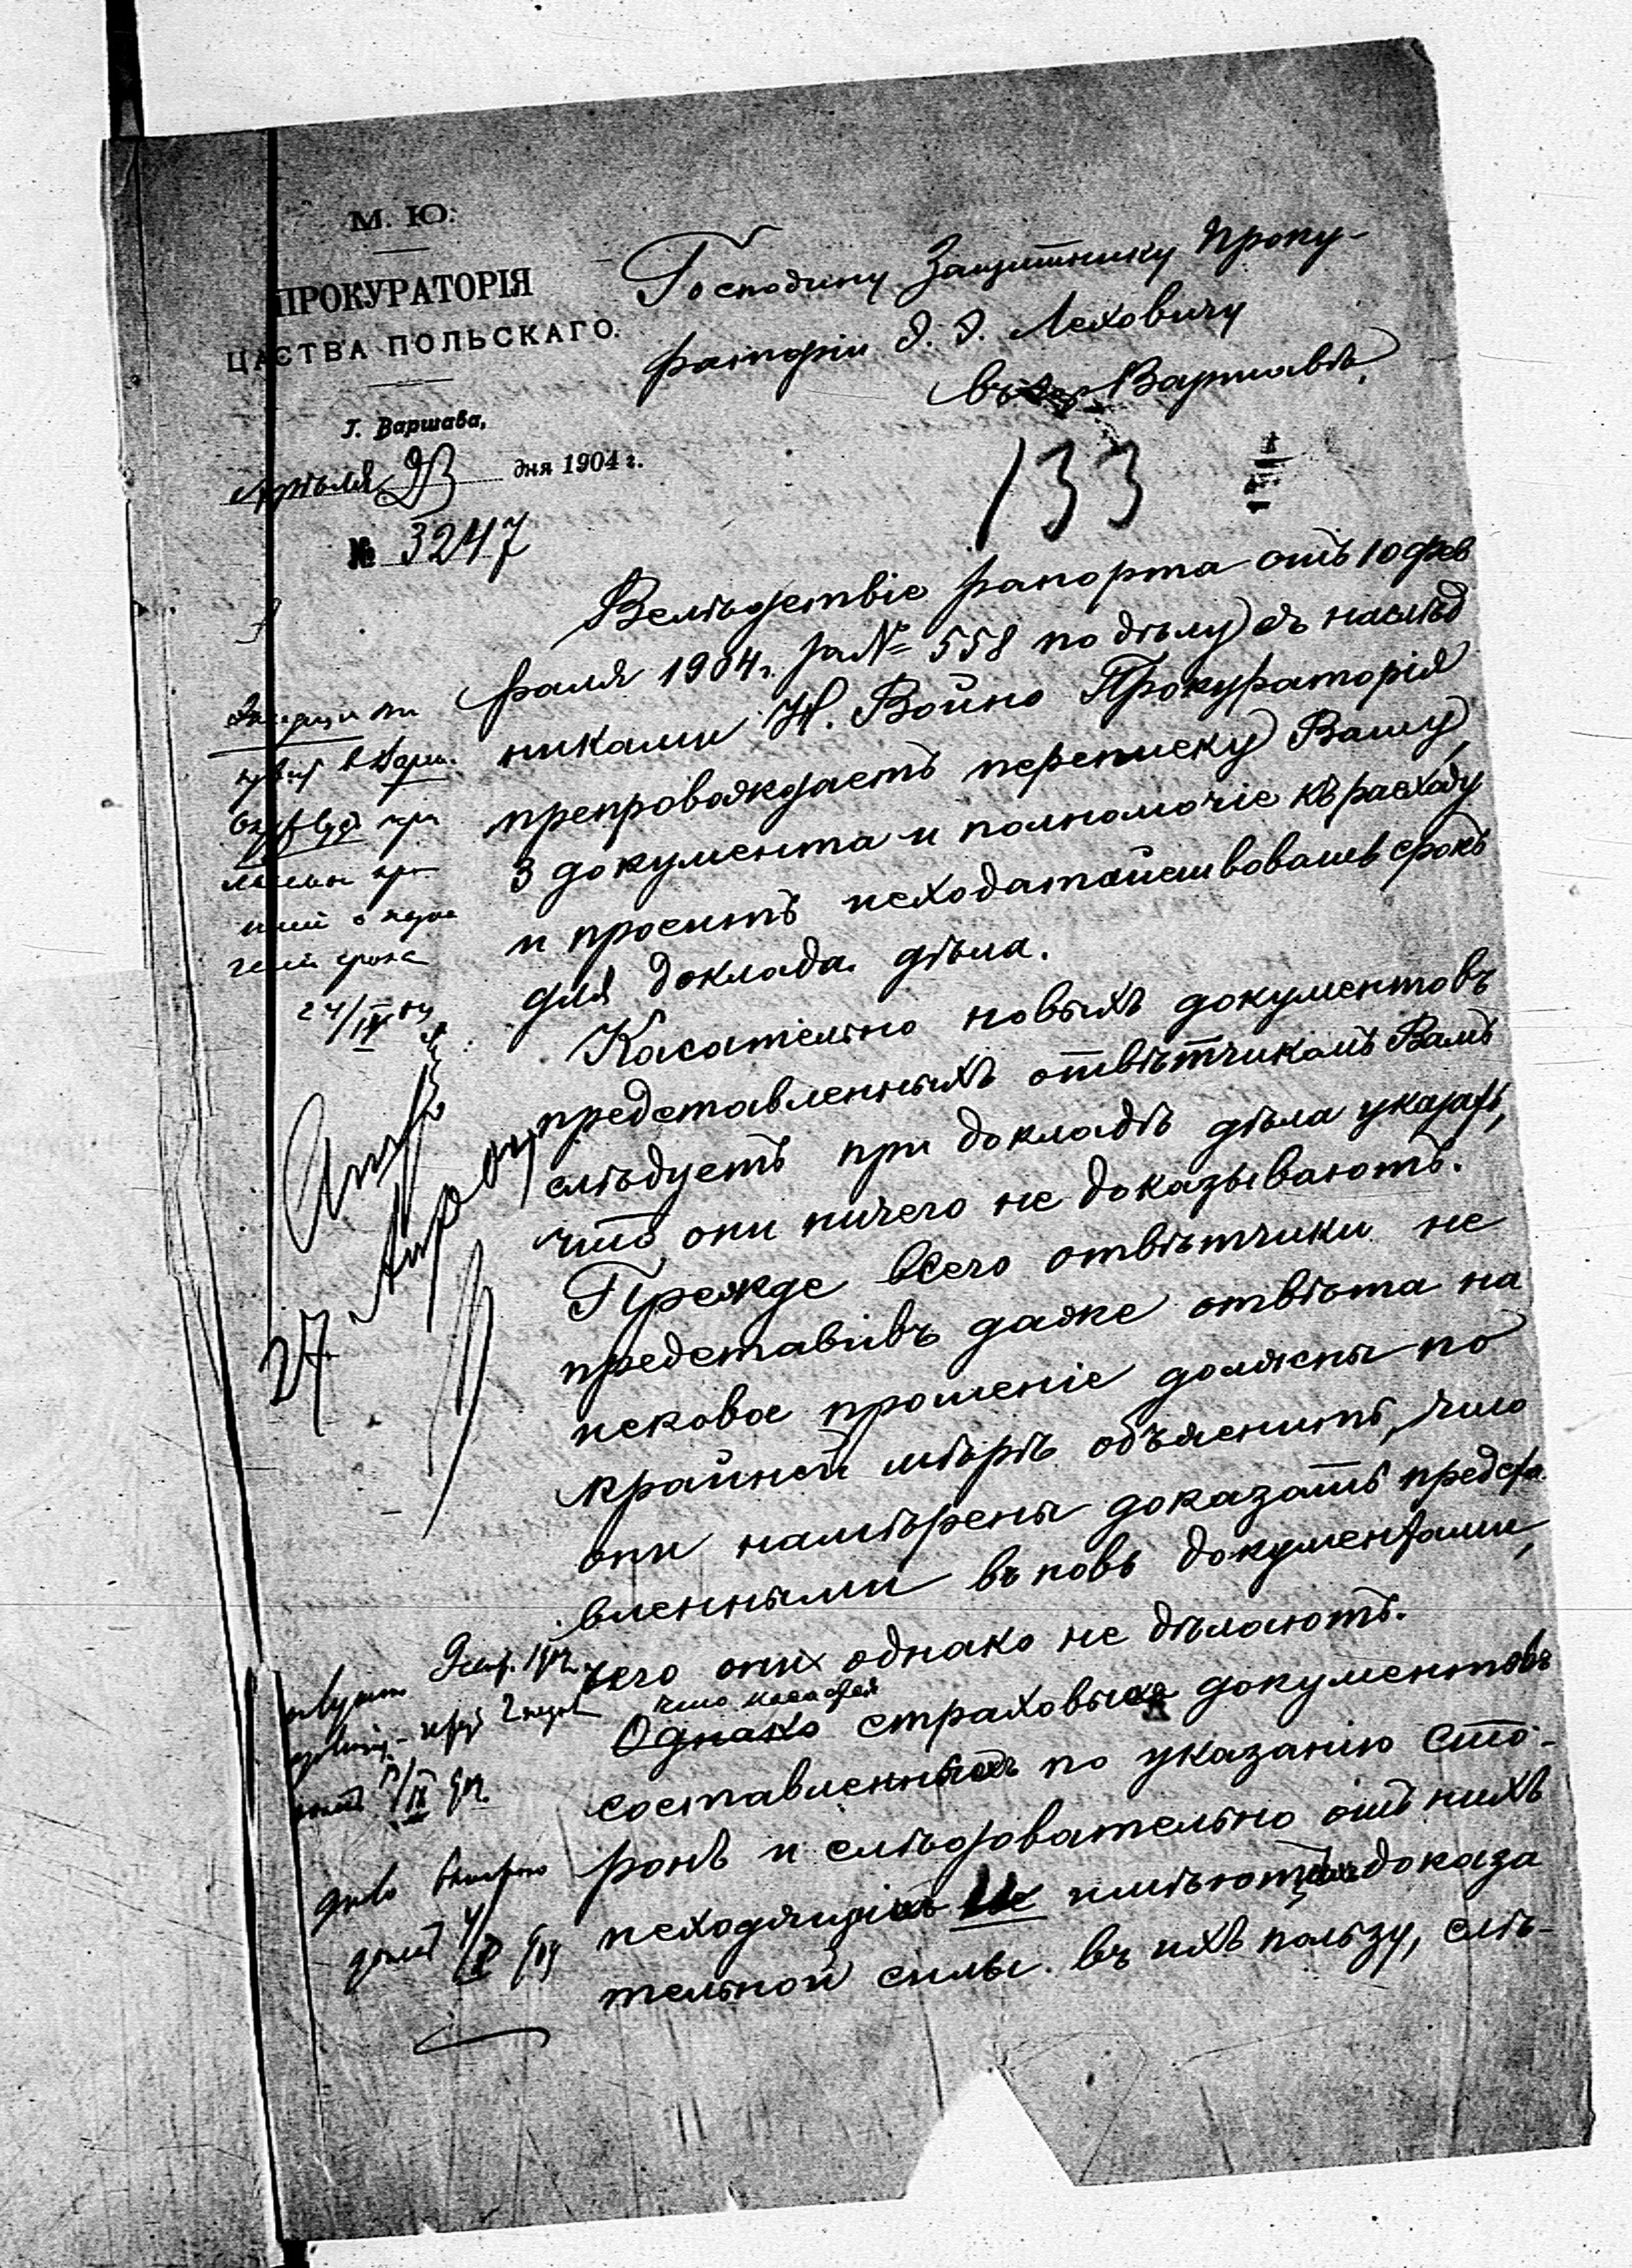 М. Ю.
ПРОКУРАТОРІЯ
ЦАСТВА ПОЛЬСКАГО.
Г. Варшава,
Апрѣля 23 дня 1904 г.
№ 3247
Господину Защитнику Проку-
раторіи Э. Э. Леховичу
въ Варшавѣ
133
Вслѣдствіе рапорта отъ 10 фев
раля 1904 г. за № 558 по дѣлу съ наслѣд
никами И. Войно Прокураторія
препровождаетъ переписку Вашу,
3 документа и полномочіе къ расходу
и проситъ исходатайствовать срокъ
для доклада дѣла.
Касательно новыхъ документовъ
представленныхъ отвѣтчикомъ Вамъ
слѣдуетъ при докладѣ дѣла указать,
что они ничего не доказываютъ.
Прежде всего отвѣтчики не
представивъ даже отвѣта на
исковое прошеніе должны по
крайней мѣрѣ объяснить, что
они намѣрены доказать предста
вленными вновь документами,
чего они однако не дѣлаютъ.
что касается
Однако страховыхъ документовъ
составленныхъ по указанію сто-
ронъ и слѣдовательно отъ нихъ
исходящихъ не имѣютъ доказа
тельной силы въ ихъ пользу, слѣ-
24/IV 04
27 Апр 04